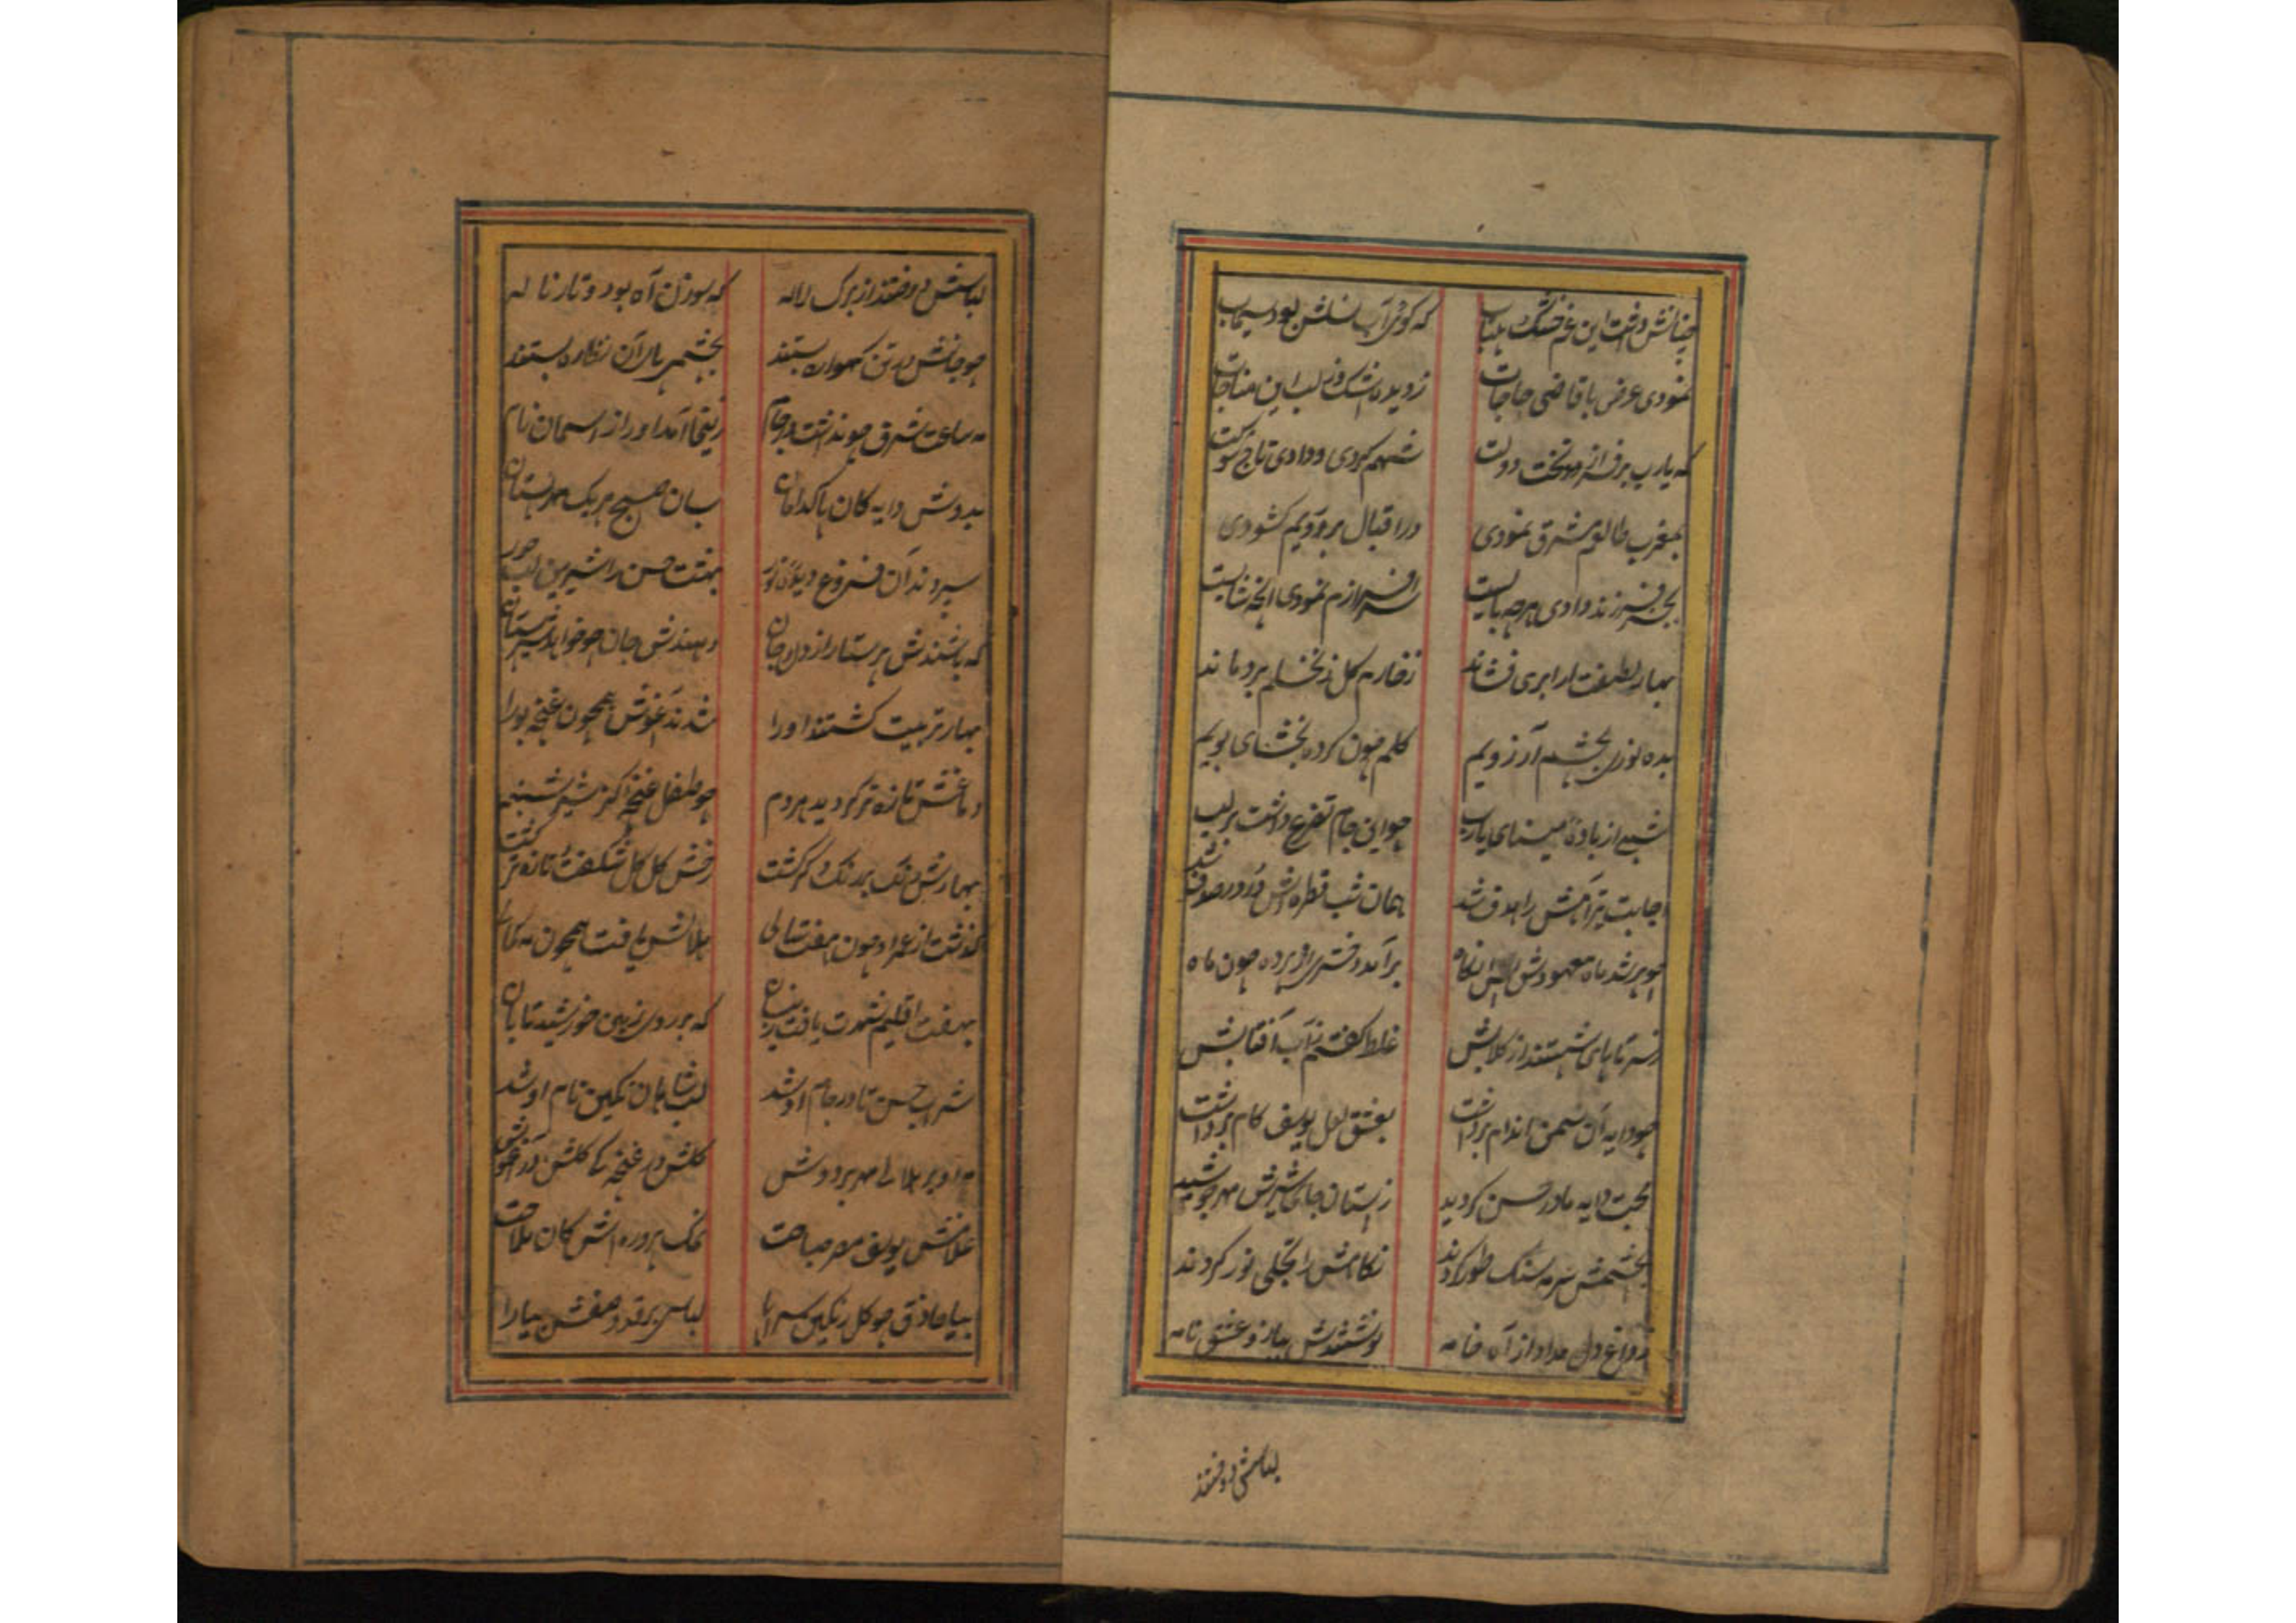 چنانش داشت این غم خشک بیتاب که گوهر آب نسلش بود سیماب
نمودی عرض با قاضی حاجات ز دیده اشک وز لب این مناجات
که یارب برفراز تخت دولت شهم کردی و دادی تاج شوکت
بمغرب طالعم مشرق نمودی در اقبال بر رویم کشودی
بجز فرزند دادی هرچه بایست سرافرازم نمودی انچه شایست
بهار لطفت ار ابری فشاند ز خارم کل ز نخلم بر دماند
بده نوری بچشم آرزویم کلم چون کرده بخشای بویم
شبی از باده مینای یارب چو این جام تضرع داشت بر لب
اجابت تیر آهش را هدف شد همان شب قطره اش در در صدف شد
چو پر شد ماه معهودش پس انکاه برآمد دختری از پرده چون ماه
ز سر تا پای شستند از کلابش غلط کفتم ز آب آفتابش
چو دایه آن سمن اندام برداشت بعشق لعل یوسف کام برداشت
محبت دایه مادر حسن کردید ز پستان جای شیرش مهر جوشید
بچشمش سرمه سنک طور کردند نکاهش را تجلی نور کردند
ز داغ دل مداد از آه خامه نوشتندش بباز و عشق نامه
لباسش دوختند
لباسش دوختند از برک لاله که سوزن آه بود و تار ناله
چو جانش در تن کهواره بستند بچشمی بار آن نظاره بستند
مه ساعت شرق چو ند اشت در جام زلیخا آمد او را از اسمان نام
بدوش دایه کان پاکدامان بسان صبح هر یک مهر پستان
سپردند آن فروغ دیده نور بهشت حسن را شیرین لب حور
که باشندش پرستار از دل و جان دهندش جان چو خواهد شیر پستان
بهار تربیت کشتند او را شدند آغوش همچون غنچه بو را
دماغش تازه تر کردید هر دم چو طفل غنچه اکر شیر شبنم
بهارش رنک بر رنک دکر کشت رخش کل کل شکفت و تازه تر کشت
کذشت از عمر او چون هفت سالی هلالش یافت همچون مه کمالی
بهفت اقلیم شهرت یافت زینسان که بر روی زمین خورشید تابان
شراب حسن تا در جام او شد لب شاهان نکین نام او شد
مه او بر هلالی مهر بر دوش کلش در غنچه کلشن در آغوش
غلامش یوسف مصر صباحت نمک پرورده اش کان ملاحت
بیا حاذق چو کل رنکین سراپا لباس بر قد وصفش بیارا